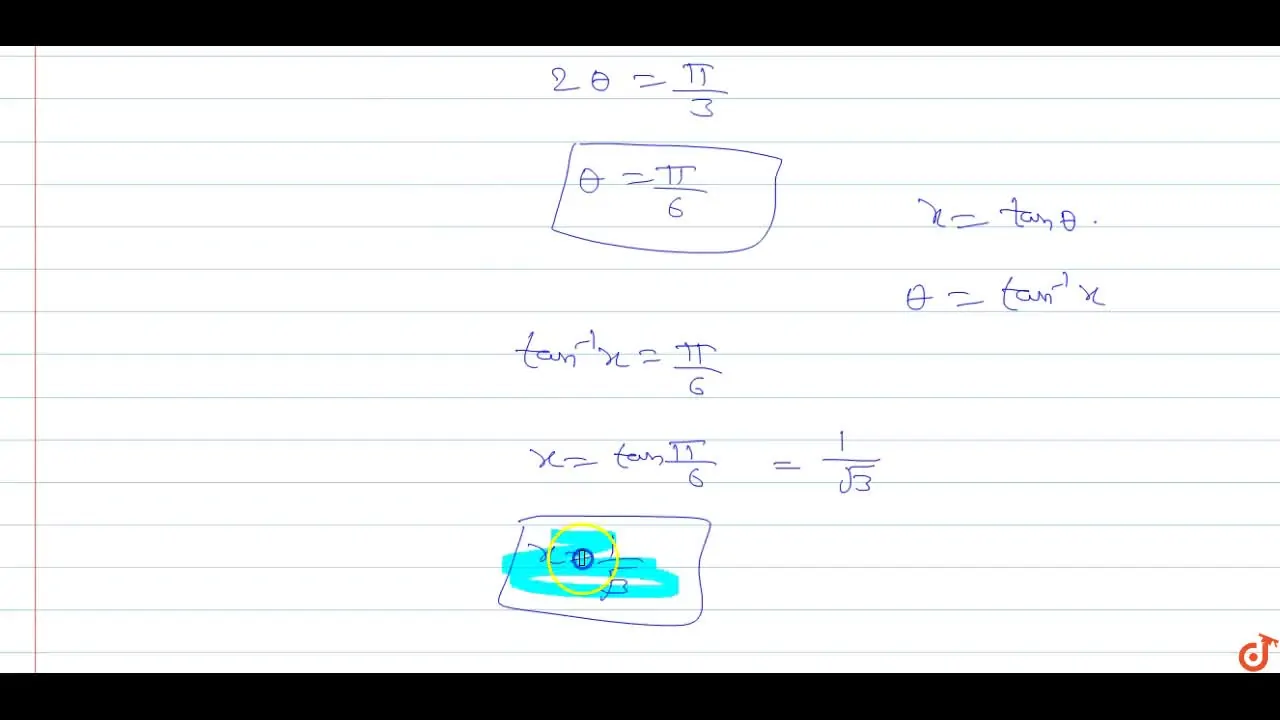 2θ = π/3
θ = π/6
x = tanθ.
θ = tan⁻¹x
tan⁻¹x = π/6
x = tan π/6 = 1/√3
x = 1/√3